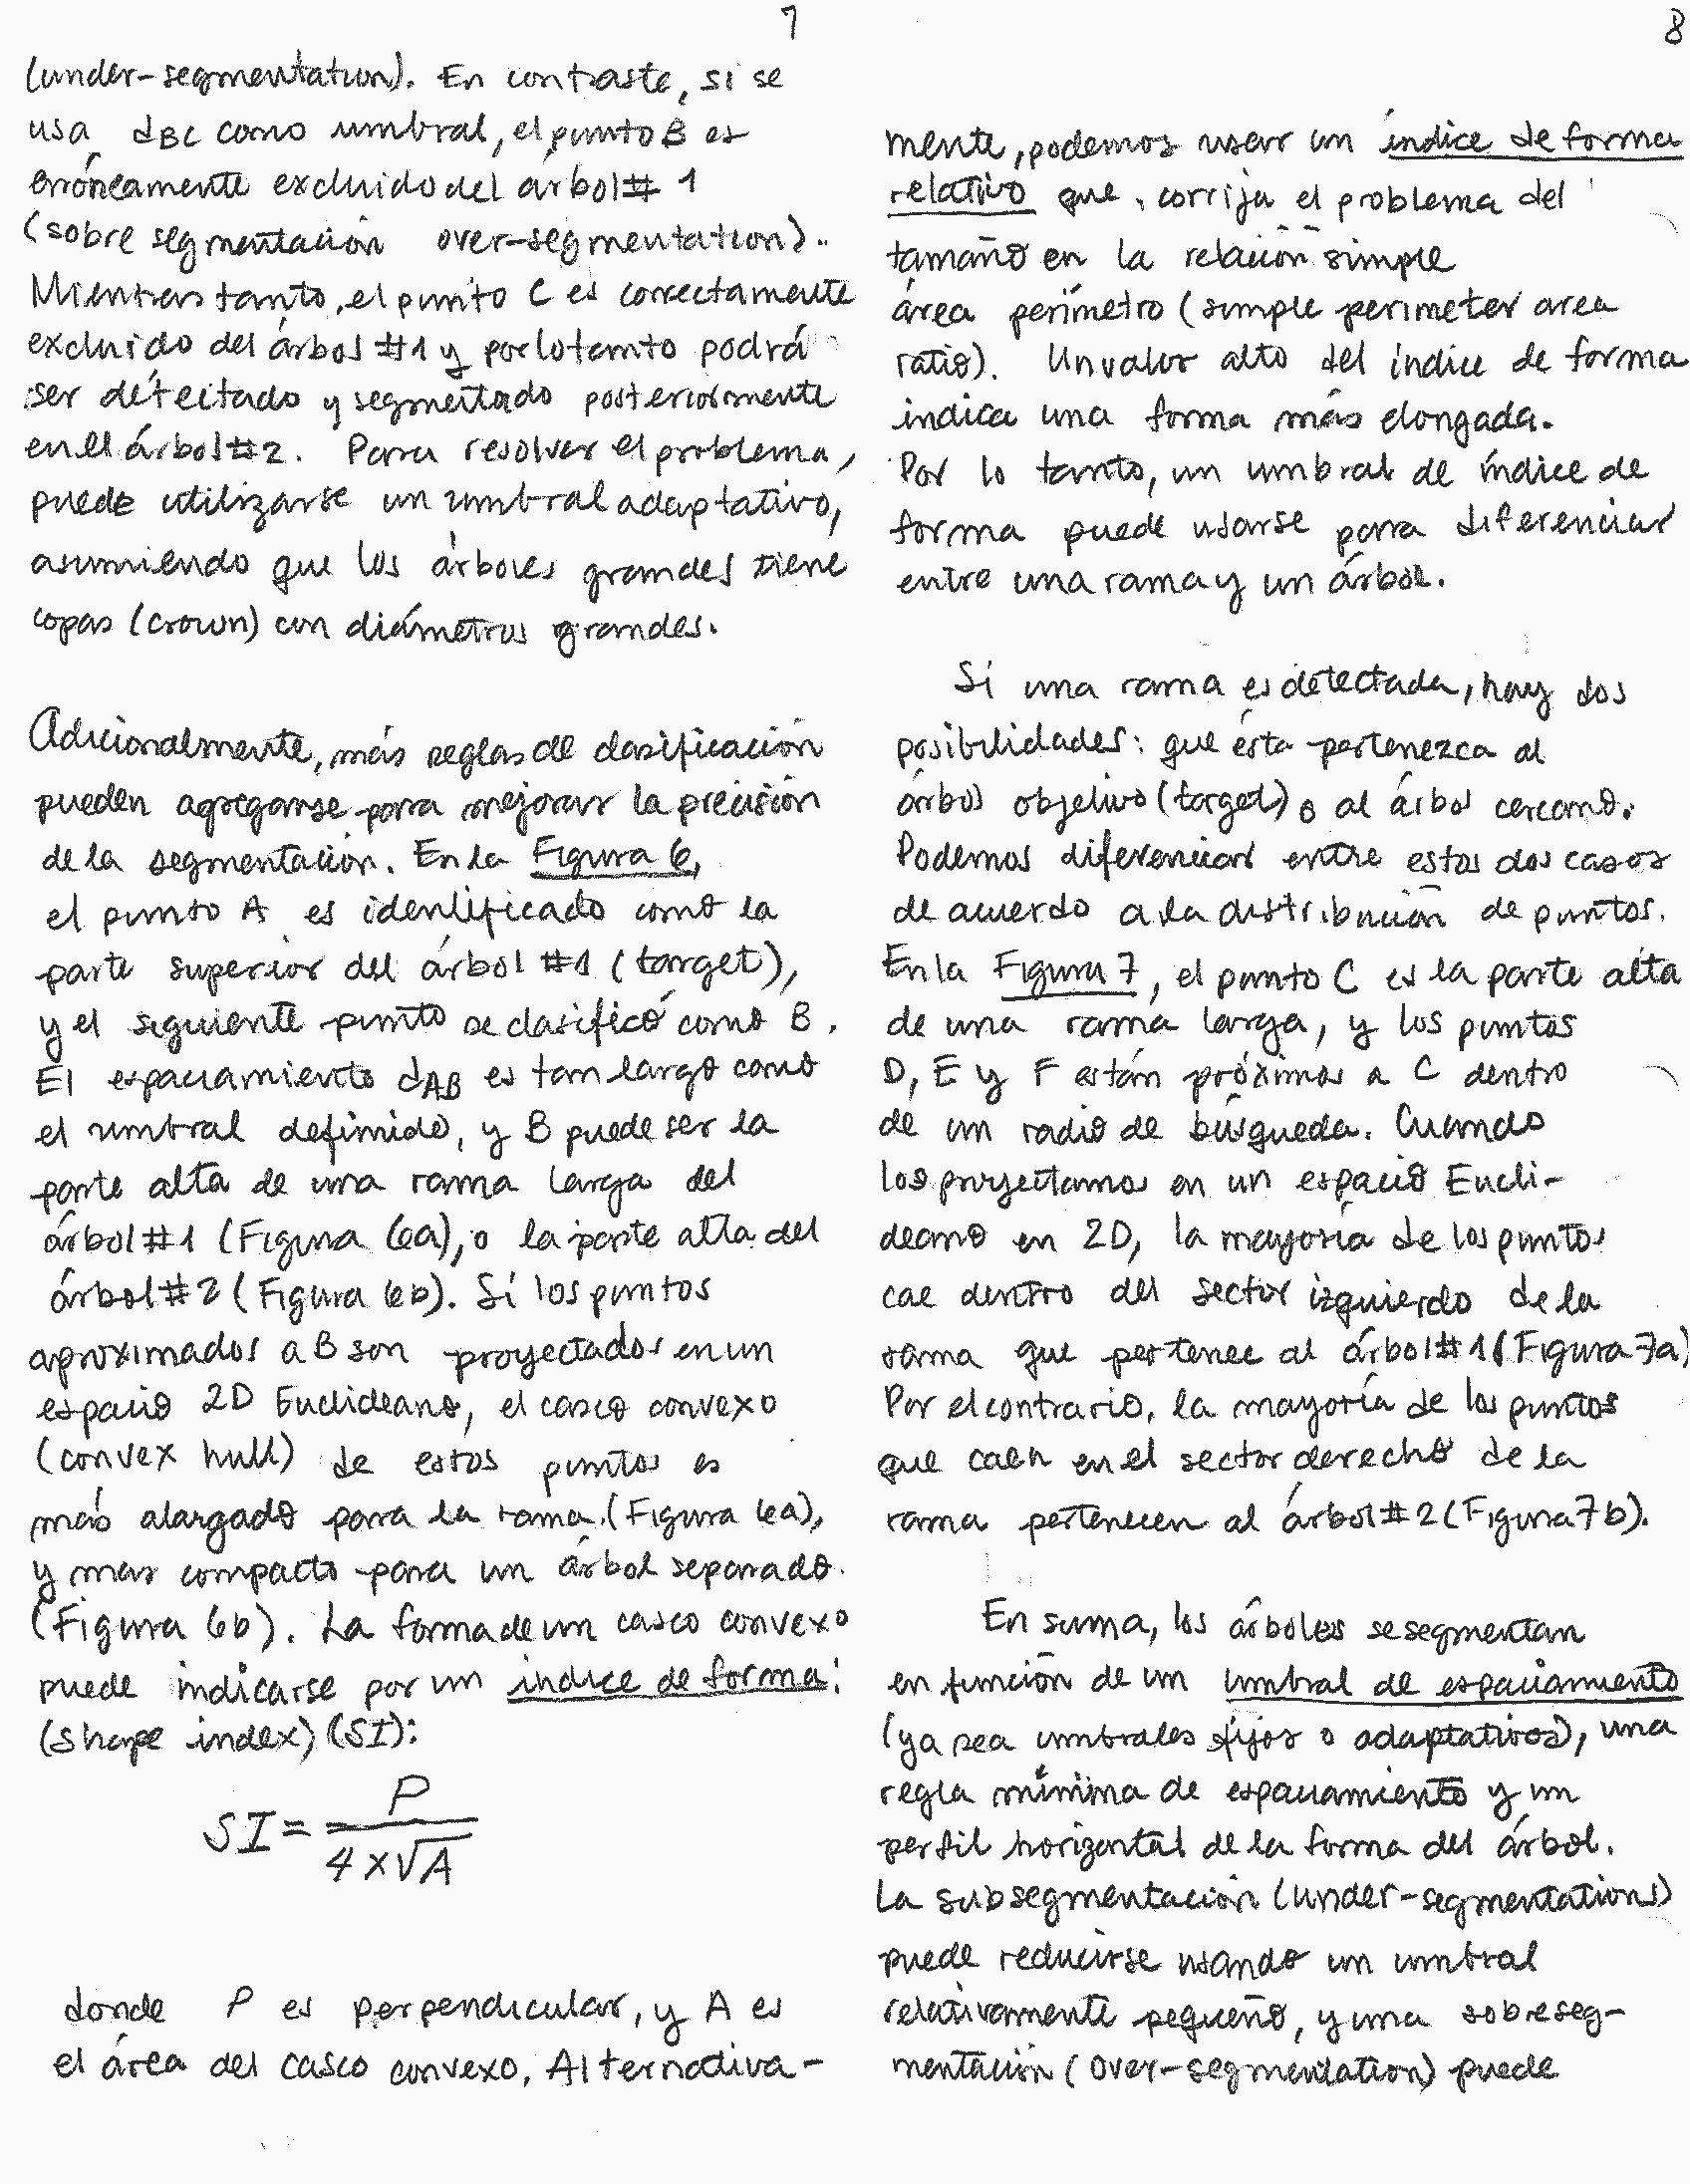 7
(under-segmentation). En contraste, si se
usa dBC como umbral, el punto B es
erróneamente excluido del árbol # 1
(sobre segmentación over-segmentation).
Mientras tanto, el punto C es correctamente
excluido del árbol #1 y por lo tanto podrá
ser detectado y segmentado posteriormente
en el árbol #2. Para resolver el problema,
puede utilizarse un umbral adaptativo,
asumiendo que los árboles grandes tiene
copas (crown) con diámetros grandes.
Adicionalmente, más reglas de clasificación
pueden agregarse para mejorar la precisión
de la segmentación. En la Figura 6,
el punto A es identificado como la
parte superior del árbol #1 (target),
y el siguiente punto se clasificó como B.
El espaciamiento dAB es tan largo como
el umbral definido, y B puede ser la
parte alta de una rama larga del
árbol #1 (Figura 6a), o la parte alta del
árbol #2 (Figura 6b). Si los puntos
aproximados a B son proyectados en un
espacio 2D Euclideano, el casco convexo
(convex hull) de estos puntos es
más alargado para la rama (Figura 6a),
y mas compacto para un árbol separado
(Figura 6b). La forma de un casco convexo
puede indicarse por un indice de forma:
(shape index) (SI):
SI = P / (4 x √A)
donde P es perpendicular, y A es
el área del casco convexo. Alternativa-
8
mente, podemos usar un índice de forma
relativo que corrija el problema del
tamaño en la relación simple
área perímetro (simple perimeter area
ratio). Un valor alto del índice de forma
indica una forma más elongada.
Por lo tanto, un umbral de índice de
forma puede usarse para diferenciar
entre una rama y un árbol.
Si una rama es detectada, hay dos
posibilidades: que ésta pertenezca al
árbol objetivo (target) o al árbol cercano.
Podemos diferenciar entre estos dos casos
de acuerdo a la distribución de puntos.
En la Figura 7, el punto C es la parte alta
de una rama larga, y los puntos
D, E y F están próximos a C dentro
de un radio de búsqueda. Cuando
los proyectamos en un espacio Eucli-
deano en 2D, la mayoría de los puntos
cae dentro del sector izquierdo de la
rama que pertenece al árbol #1 (Figura 7a)
Por el contrario, la mayoría de los puntos
que caen en el sector derecho de la
rama pertenecen al árbol #2 (Figura 7b).
En suma, los árboles se segmentan
en función de un umbral de espaciamiento
(ya sea umbrales fijos o adaptativos), una
regla mínima de espaciamiento y un
perfil horizontal de la forma del árbol.
La subsegmentación (under-segmentations)
puede reducirse usando un umbral
relativamente pequeño, y una sobreseg-
mentación (over-segmentation) puede